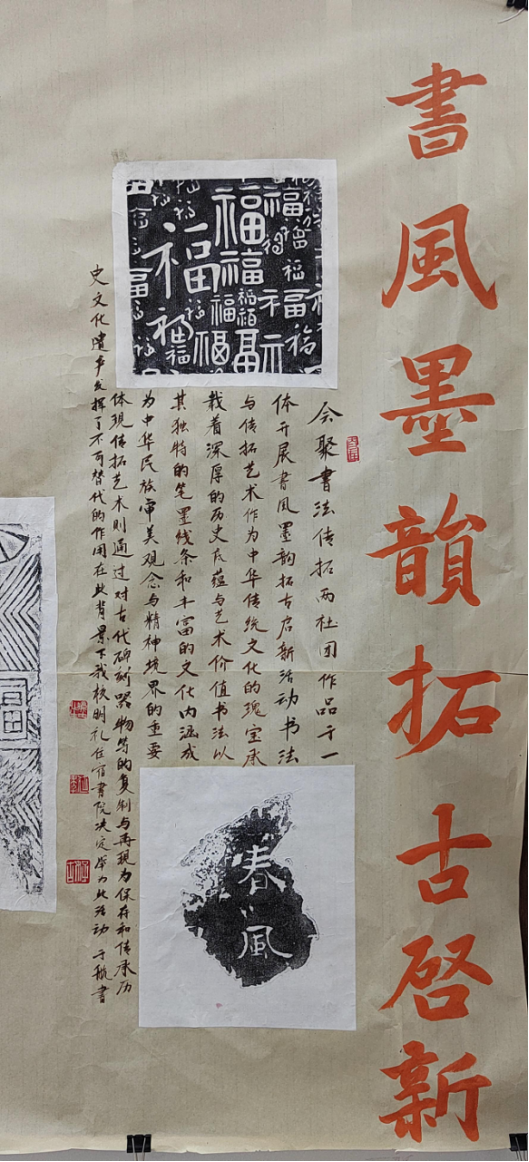 書風墨韻拓古啓新
会聚書法传拓两社团作品于一
体开展书风墨韵拓古启新活动书法
与传拓艺术作为中华传统文化的瑰宝承
载着深厚的历史底蕴与艺术价值书法以
其独特的笔墨线条和丰富的文化内涵成
为中华民族审美观念与精神境界的重要
体现传拓艺术则通过对古代碑刻器物等的复制与再现为保存和传承历
史文化遗产发挥了不可替代的作用在此背景下我校明礼住宿書院决定举办此活动 于航書
福
春风